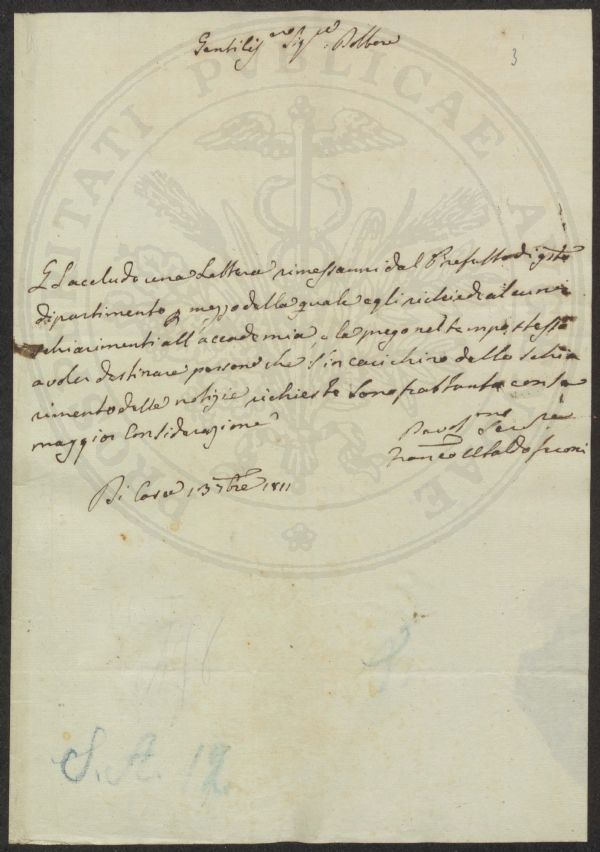 Gentiliss.mo Sig.re Dottore
3
Le accludo una Lettera rimessami dal Prefetto di q.sto
dipartimento p mezzo della quale egli richiede alcuni
schiarimenti all'accademia, e la prego nel tempo stesso
a voler destinare persone che s'incarichino dello schia
rimento delle notizie richieste. Sono frattanto con la
maggior Considerazione
Devot.mo Ser.re
Franco Ubaldo
Di Casa 13 7bre 1811
S.A. 12.
PROSPERITATI PUBLICAE AUGENDAE